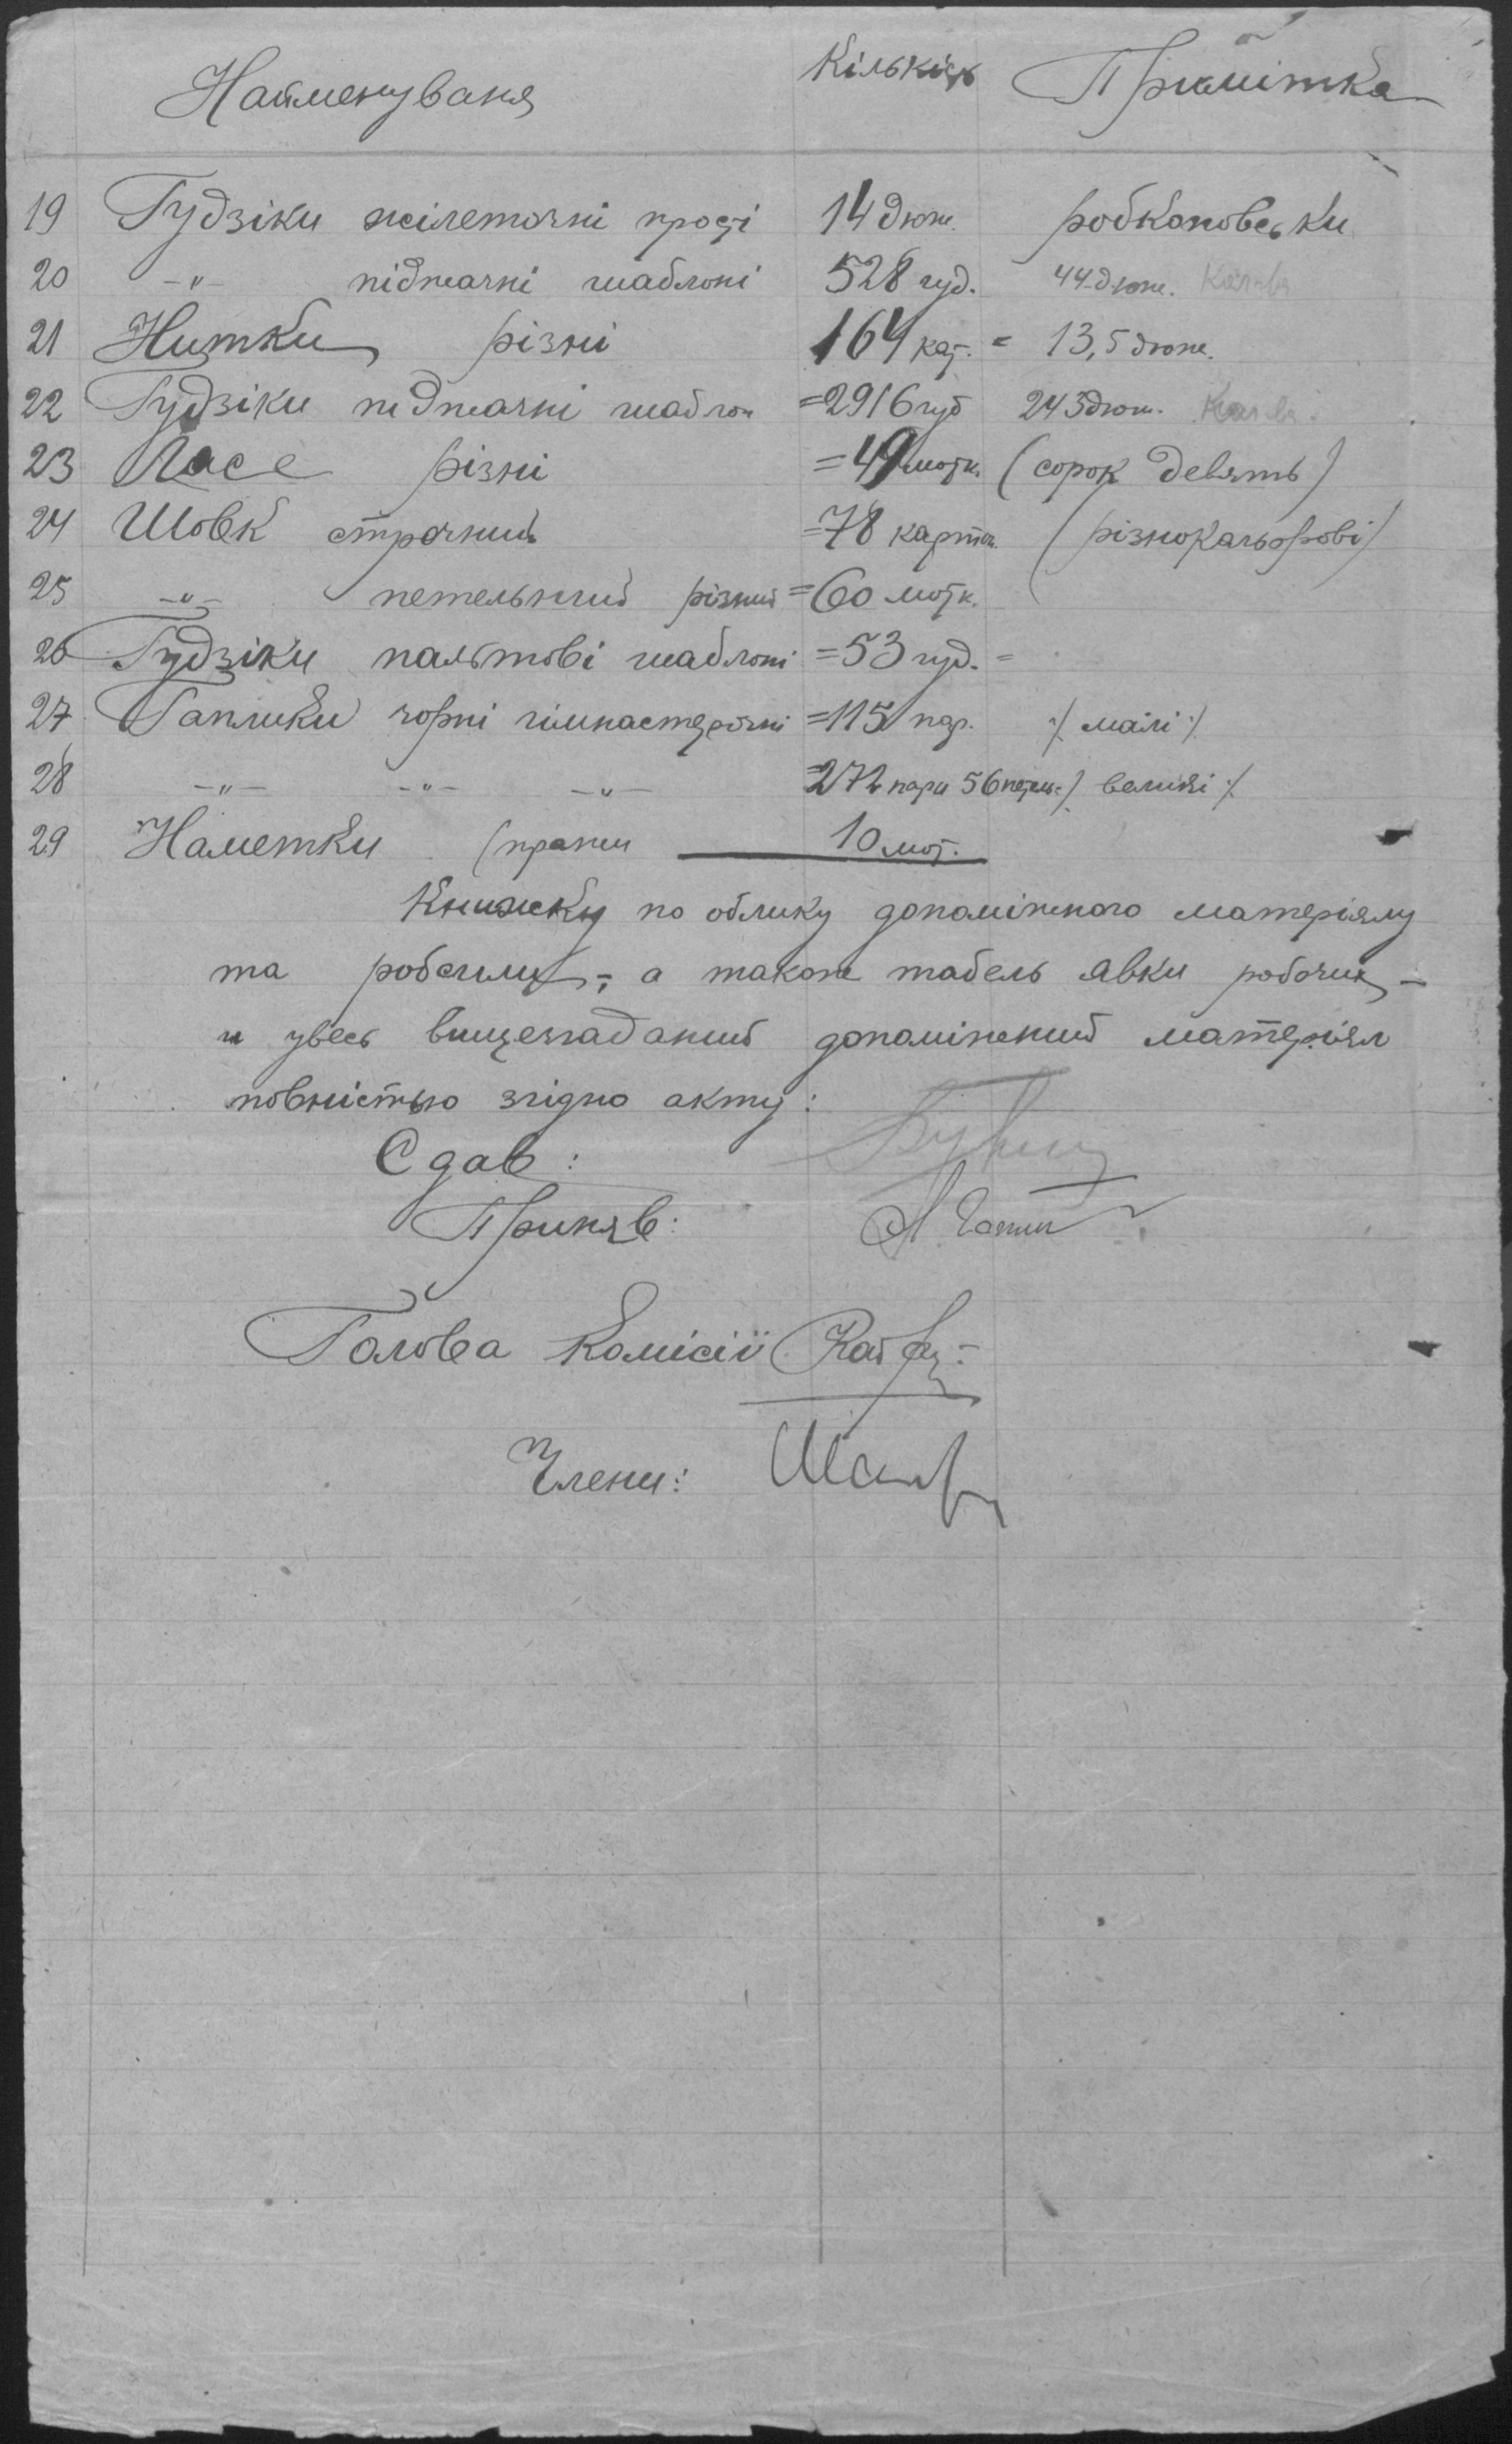 Найменуваня Кількість Примітка
19 Гудзіки жілеточні прості 14 дюж. робкоповськи
20 -"- піджачні шаблоні 528 гуд. 44 дюж.
21 Нитки різні 164 кат. = 13,5 дюж.
22 Гудзіки піджачні шаблон =2916 гуд 243 дюж.
23 Лясе різні =49 мотк. (сорок девять)
24 Шовк строчний =78 карточ. (різнокальорові)
25 -"- петельний різний =60 мотк.
26 Гудзіки пальтові шаблоні =53 гуд. =
27 Гаплики чорні гімнастерочні =115 пар. ·/. малі ·/.
28 -"- -"- -"- =272 пари 56 петель ·/. великі ·/.
29 Наметки (пряжи 10 мот.
Книжку по обліку допоміжного матеріялу
та робсили, а також табель явки робочих -
и увесь вищезгаданий допоміжний матеріял
повністью згідно акту:
Сдав:
Приняв:
Голова Комісії
Члени: